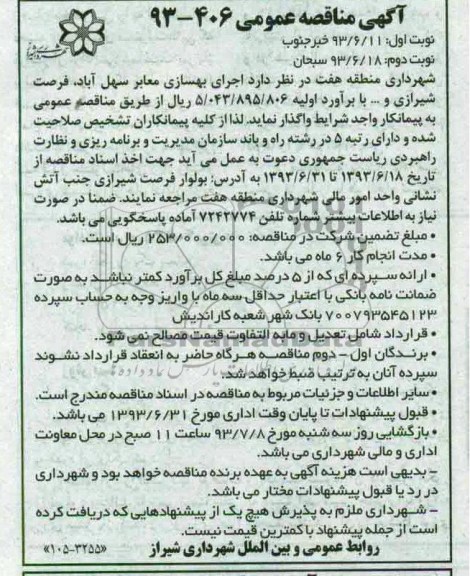 آگهی مناقصه عمومی ۴۰۶-۹۳
نوبت اول: ۹۳/۶/۱۱ خبر جنوب
نوبت دوم: ۹۳/۶/۱۸ سبحان
شهرداری منطقه هفت در نظر دارد اجرای بهسازی معابر سهل آباد، فرصت
شیرازی و ... با برآورد اولیه ۵/۰۴۳/۸۹۵/۸۰۶ ریال از طریق مناقصه عمومی
به پیمانکار واجد شرایط واگذار نماید. لذا از کلیه پیمانکاران تشخیص صلاحیت
شده و دارای رتبه ۵ در رشته راه و باند سازمان مدیریت و برنامه ریزی و نظارت
راهبردی ریاست جمهوری دعوت به عمل می آید جهت اخذ اسناد مناقصه از
تاریخ ۱۳۹۳/۶/۱۸ تا ۱۳۹۳/۶/۳۱ به آدرس: بولوار فرصت شیرازی جنب آتش
نشانی واحد امور مالی شهرداری منطقه هفت مراجعه نمایند. ضمنا در صورت
نیاز به اطلاعات بیشتر شماره تلفن ۷۲۴۳۷۷۴ آماده پاسخگویی می باشد.
• مبلغ تضمین شرکت در مناقصه: ۲۵۳/۰۰۰/۰۰۰ ریال است.
• مدت انجام کار ۶ ماه می باشد.
• ارائه سپرده ای که از ۵ درصد مبلغ کل برآورد کمتر نباشد به صورت
ضمانت نامه بانکی با اعتبار حداقل سه ماه یا واریز وجه به حساب سپرده
۷۰۰۷۹۳۵۴۵۱۲۳ بانک شهر شعبه کاراندیش
• قرارداد شامل تعدیل و مابه التفاوت قیمت مصالح نمی شود.
• برندگان اول - دوم مناقصه هرگاه حاضر به انعقاد قرارداد نشوند
سپرده آنان به ترتیب ضبط خواهد شد.
• سایر اطلاعات و جزئیات مربوط به مناقصه در اسناد مناقصه مندرج است.
• قبول پیشنهادات تا پایان وقت اداری مورخ ۱۳۹۳/۶/۳۱ می باشد.
• بازگشایی روز سه شنبه مورخ ۹۳/۷/۸ ساعت ۱۱ صبح در محل معاونت
اداری و مالی شهرداری می باشد.
- بدیهی است هزینه آگهی به عهده برنده مناقصه خواهد بود و شهرداری
در رد یا قبول پیشنهادات مختار می باشد.
- شهرداری ملزم به پذیرش هیچ یک از پیشنهادهایی که دریافت کرده
است از جمله پیشنهاد با کمترین قیمت نیست.
روابط عمومی و بین الملل شهرداری شیراز «۱۰۵-۳۲۵۵»